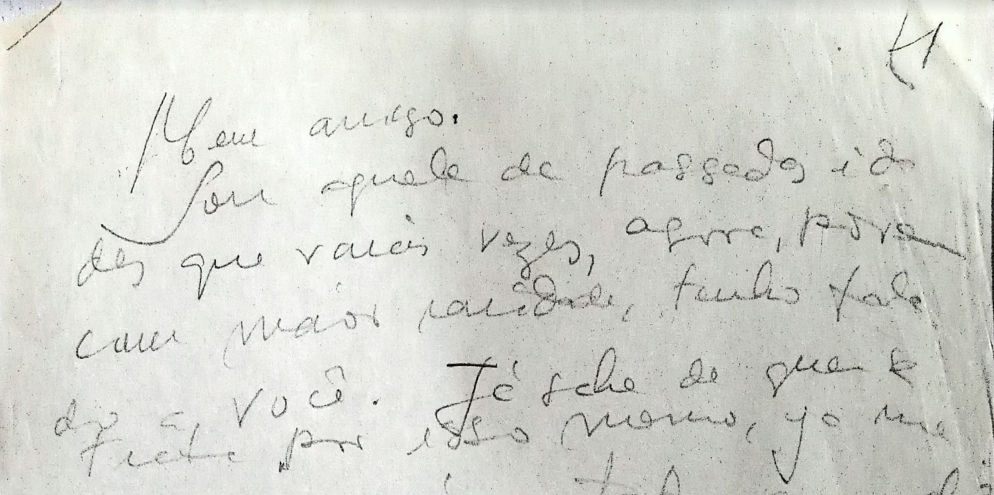 Meu amigo.
Sou aquele de passadas ida
des que várias vezes, agora, porem
com maior raridade, tenho fala
do a você. Já sabe de quem se
trata por isso mesmo, já me